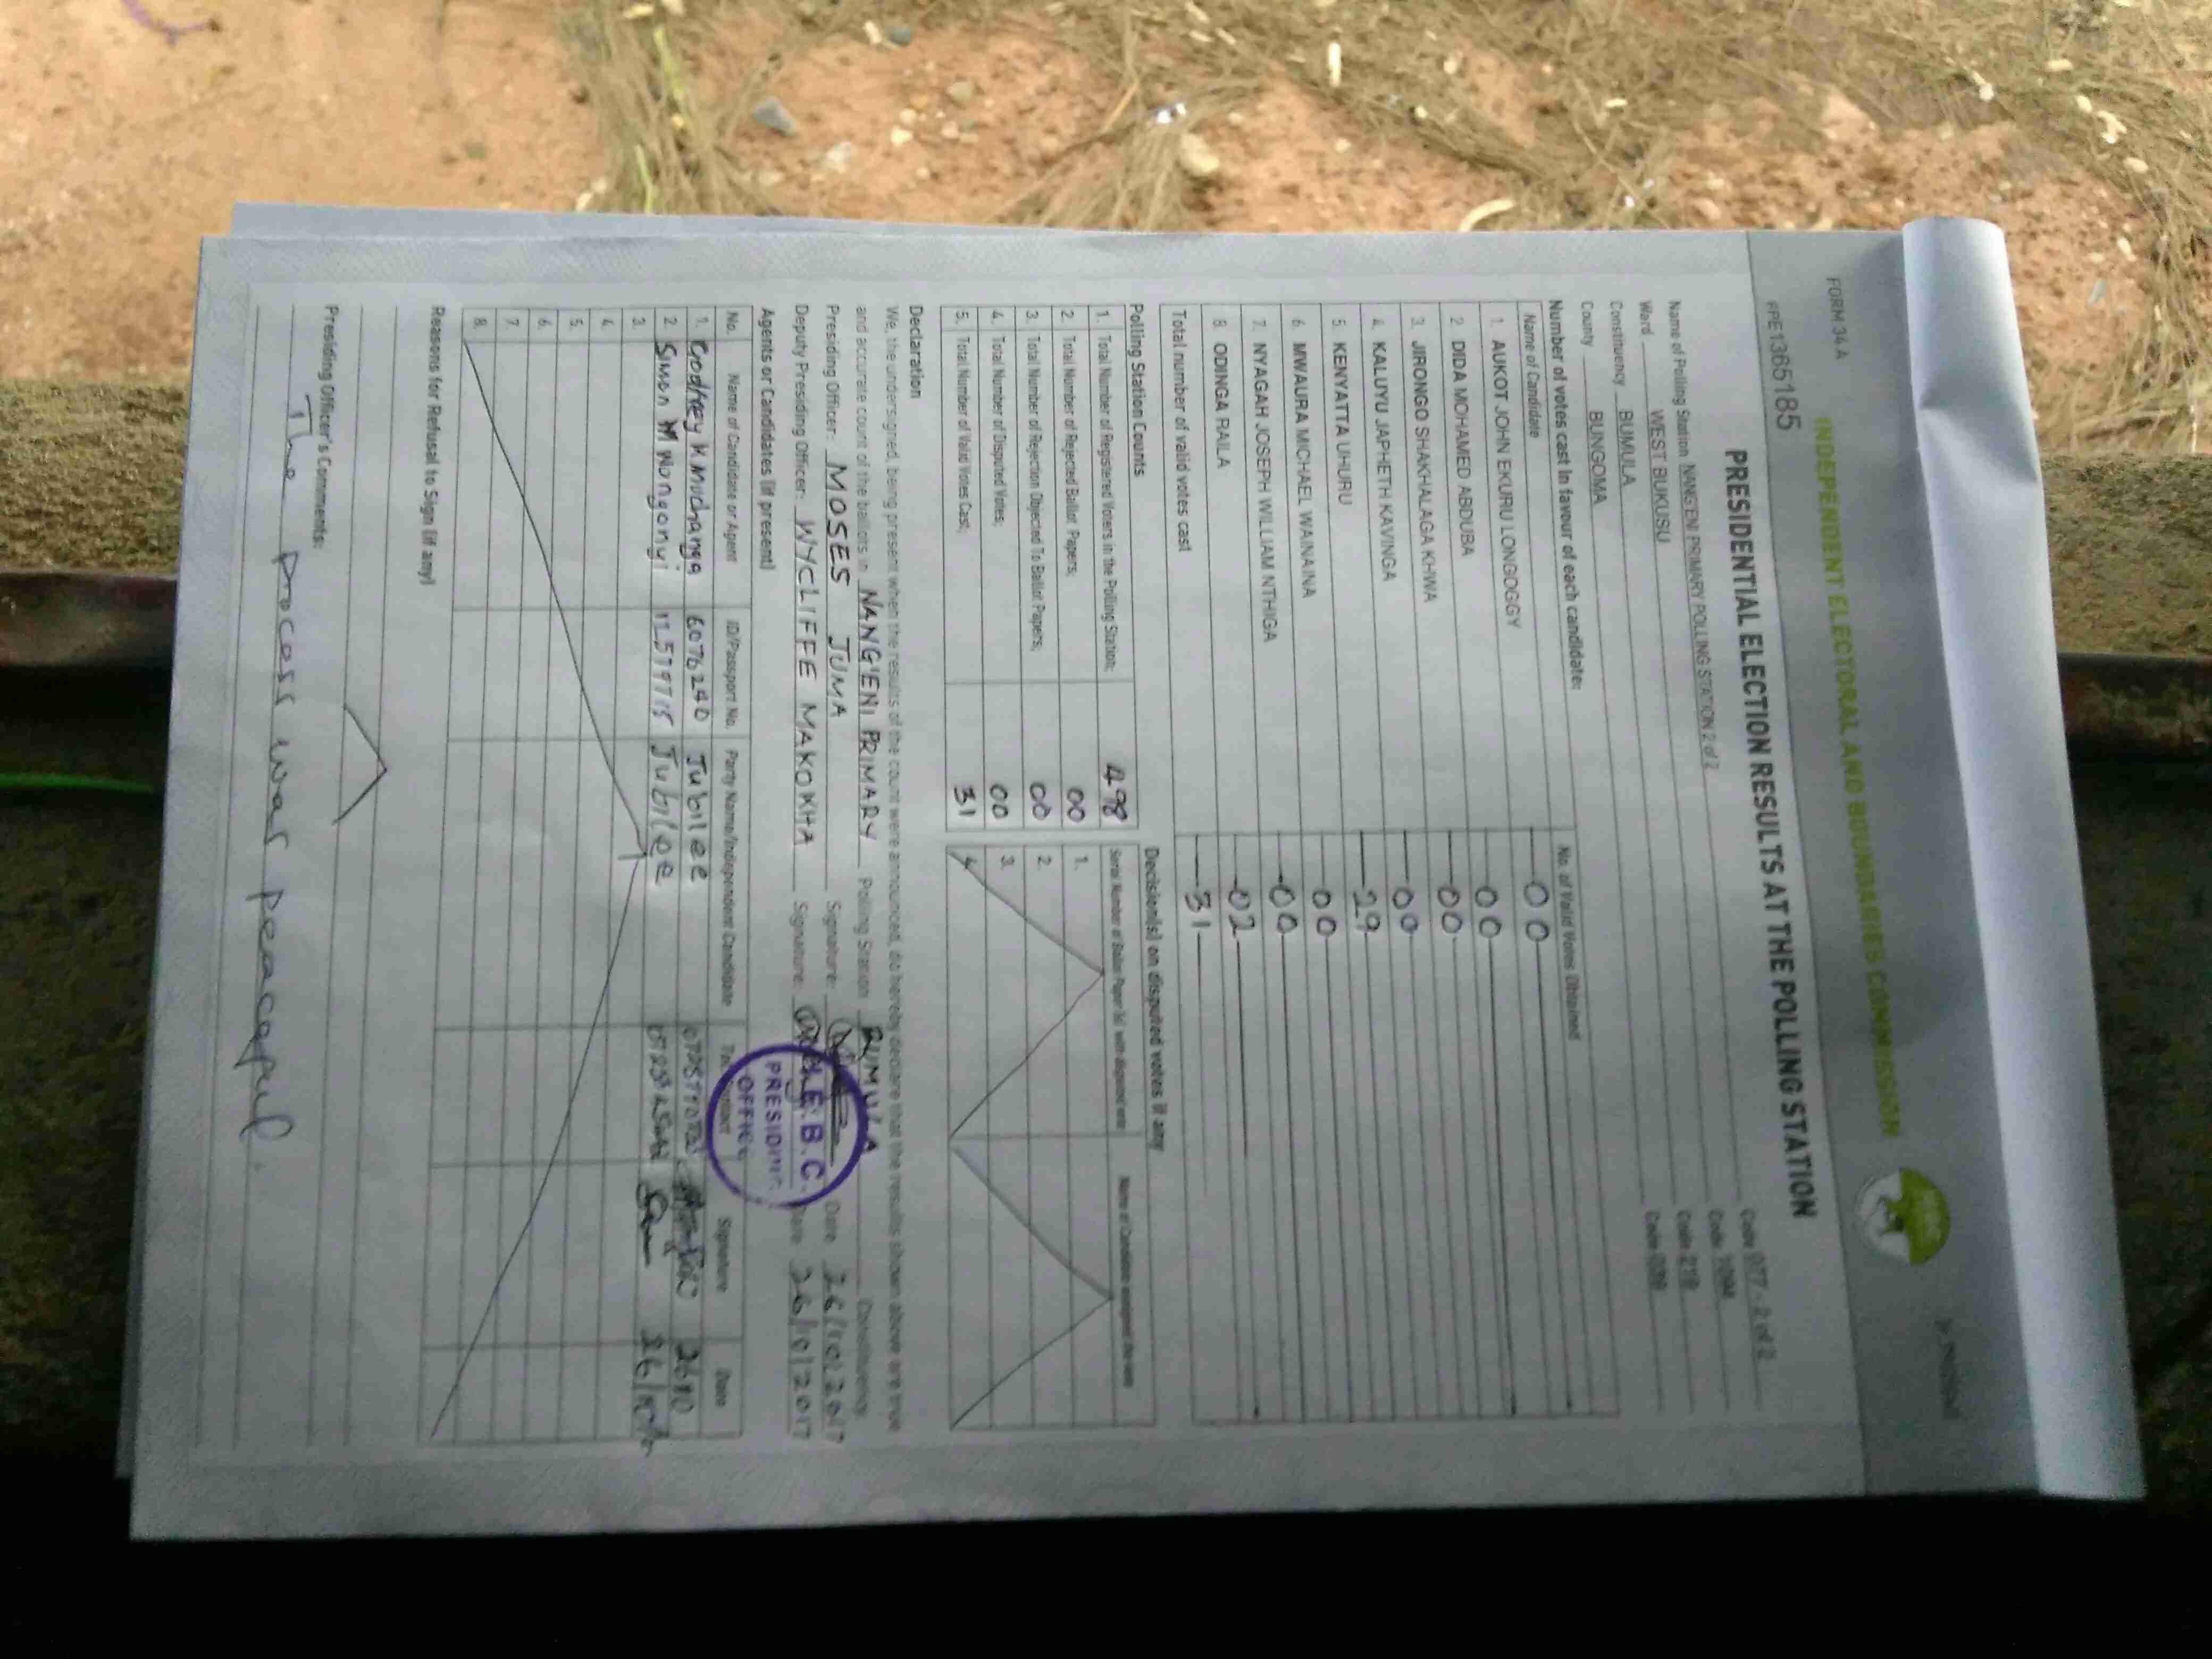 FORM 34 A
INDEPENDENT ELECTORAL AND BOUNDARIES COMMISSION
PPE1365185
PRESIDENTIAL ELECTION RESULTS AT THE POLLING STATION
Name of Polling Station NANGENI PRIMARY POLLING STATION 2 of 2 Code 077 - 2 of 2
Ward WEST BUKUSU Code
Constituency BUMULA Code 219
County BUNGOMA Code 039
Number of votes cast in favour of each candidate:
Name of Candidate No. of Valid Votes Obtained
1. AUKOT JOHN EKURU LONGOGGY 00
2. DIDA MOHAMED ABDUBA 00
3. JIRONGO SHAKHALAGA KHWA 00
4. KALUYU JAPHETH KAVINGA 00
5. KENYATTA UHURU 29
6. MWAURA MICHAEL WAINAINA 00
7. NYAGAH JOSEPH WILLIAM NTHIGA 00
8. ODINGA RAILA 02
Total number of valid votes cast 31
Polling Station Counts
1. Total Number of Registered Voters in the Polling Station; 498
2. Total Number of Rejected Ballot Papers; 00
3. Total Number of Rejection Objected To Ballot Papers; 00
4. Total Number of Disputed Votes; 00
5. Total Number of Valid Votes Cast; 31
Decision(s) on disputed votes if any
Serial Number of Ballot Paper (s) with disputed vote Name of Candidate assigned the vote
1.
2.
3.
4.
Declaration
We, the undersigned, being present when the results of the count were announced, do hereby declare that the results shown above are true
and accurate count of the ballots in NANGENI PRIMARY Polling Station BUMULA Constituency.
Presiding Officer: MOSES JUMA Signature: Date 26/10/2017
Deputy Presiding Officer: WYCLIFFE MAKOKHA Signature: Date 26/10/2017
I.E.B.C.
PRESIDING
OFFICER
Agents or Candidates (if present)
No. Name of Candidate or Agent ID/Passport No. Party Name/Independent Candidate Signature Date
1. Godfrey K Muchanga 6076240 Jubilee 26/10
2. Simon M Wongonyi Jubilee
3.
4.
5.
6.
7.
8.
Reasons for Refusal to Sign (if any)
Presiding Officer's Comments:
The process was peaceful.